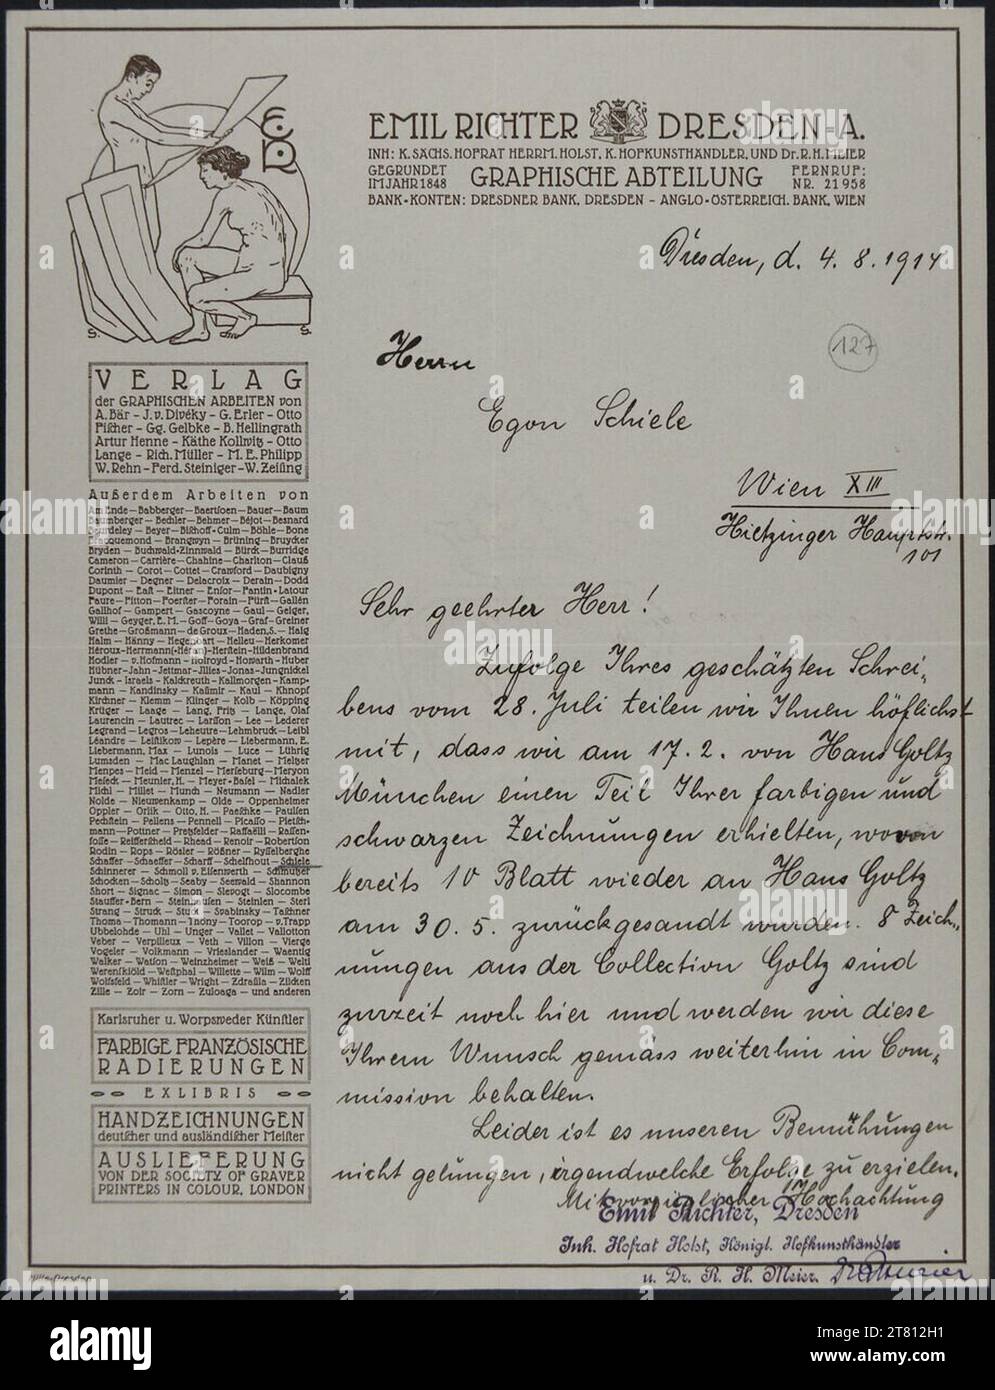 E.R.
EMIL RICHTER DRESDEN-A.
INH: K. SÄCHS. HOFRAT HERRM. HOLST, K. HOFKUNSTHÄNDLER, UND Dr. R. H. MEIER
GEGRUNDET IM JAHR 1848
GRAPHISCHE ABTEILUNG
FERNRUF: NR. 21958
BANK-KONTEN: DRESDNER BANK, DRESDEN - ANGLO-ÖSTERREICH. BANK, WIEN
Dresden, d. 4. 8. 1914
127
Herrn
Egon Schiele
Wien XIII
Hietzinger Hauptstr.
101
Sehr geehrter Herr!
Zufolge Ihres geschätzten Schrei-
bens vom 28. Juli teilen wir Ihnen höflichst
mit, dass wir am 17. 2. von Hans Goltz
München einen Teil Ihrer farbigen und
schwarzen Zeichnungen erhielten, wovon
bereits 10 Blatt wieder an Hans Goltz
am 30. 5. zurückgesandt wurden. 8 Zeich-
nungen aus der Collection Goltz sind
zurzeit noch hier und werden wir diese
Ihrem Wunsch gemäss weiterhin in Com-
mission behalten.
Leider ist es unseren Bemühungen
nicht gelungen, irgendwelche Erfolge zu erzielen.
Mit vorzüglicher Hochachtung
Emil Richter, Dresden
Inh. Hofrat Holst, Königl. Hofkunsthändler
u. Dr. R. H. Meier.
S. S.
VERLAG
der GRAPHISCHEN ARBEITEN von
A. Bär - J. v. Divéky - G. Erler - Otto
Fischer - Gg. Gelbke - B. Hellingrath
Artur Henne - Käthe Kollwitz - Otto
Lange - Rich. Müller - M. E. Philipp
W. Rehn - Ferd. Steiniger - W. Zeising
Außerdem Arbeiten von
Am Ende — Babberger — Baertsoen — Bauer — Baum
Baumberger — Bechler — Behmer — Béjot — Besnard
Beurdeley — Beyer — Bischoff-Culm — Böhle — Bone
Bracquemond — Brangwyn — Brüning — Bruycker
Bryden — Buchwald-Zinnwald — Bürck — Burridge
Cameron — Carrière — Chahine — Charlton — Clauß
Corinth — Corot — Cottet — Crawford — Daubigny
Daumier — Degner — Delacroix — Derain — Dodd
Dupont — East — Eitner — Ensor — Fantin-Latour
Faure — Fitton — Foerster — Forain — Fürst — Gallén
Gallhof — Gampert — Gascoyne — Gaul — Geiger,
Willi — Geyger, E. M. — Goff — Goya — Graf — Greiner
Grethe — Großmann — de Groux — Haden, S. — Haig
Halm — Hänny — Hegenbart — Helleu — Herkomer
Héroux — Herrmann (-Héran) — Herstein — Hildenbrand
Hodler — v. Hofmann — Holroyd — Howarth — Huber
Hübner — Jahn — Jettmar — Jilles — Jonas — Jungnickel
Junck — Israels — Kalckreuth — Kallmorgen — Kamp-
mann — Kandinsky — Kašimir — Kaul — Khnopf
Kirchner — Klemm — Klinger — Kolb — Köpping
Krüger — Laage — Lang, Fritz — Lange, Olaf
Laurencin — Lautrec — Larsson — Lee — Lederer
Legrand — Legros — Leheutre — Lehmbruck — Leibl
Léandre — Leistikow — Lepère — Liebermann, E.
Liebermann, Max — Lunois — Luce — Lührig
Lumsden — Mac Laughlan — Manet — Melzer
Menpes — Meid — Menzel — Merseburg — Meryon
Meseck — Meunier, H. — Meyer-Basel — Michalek
Michl — Millet — Munch — Neumann — Nadler
Nolde — Nieuwenkamp — Olde — Oppenheimer
Oppler — Orlik — Otto, H. — Paeschke — Paulsen
Pechstein — Pellens — Pennell — Picasso — Pietsch-
mann — Pottner — Pretzfelder — Raffaëlli — Rassen-
fosse — Reifferscheid — Rhead — Renoir — Robertson
Rodin — Rops — Rösler — Rößner — Rysselberghe
Schaffer — Schaeffer — Scharff — Schelfhout — Schiele
Schinnerer — Schmoll v. Eisenwerth — Schmutzer
Schocken — Scholtz — Seaby — Seewald — Shannon
Short — Signac — Simon — Slevogt — Slocombe
Stauffer-Bern — Steinhausen — Steinlen — Sterl
Strang — Struck — Stuck — Svabinsky — Taschner
Thoma — Thomann — Thöny — Toorop — v. Trapp
Ubbelohde — Uhl — Unger — Vallet — Vallotton
Veber — Verpilleux — Veth — Villon — Vierge
Vogeler — Volkmann — Vrieslander — Waentig
Walker — Watson — Weinzheimer — Weiß — Welti
Werenskiöld — Westphal — Willette — Wilm — Wolff
Wolfsfeld — Whistler — Wright — Zdrasila — Zilcken
Zille — Zoir — Zorn — Zuloaga — und anderen
Karlsruher u. Worpsweder Künstler
FARBIGE FRANZÖSISCHE
RADIERUNGEN
EXLIBRIS
HANDZEICHNUNGEN
deutscher und ausländischer Meister
AUSLIEFERUNG
VON DER SOCIETY OF GRAVER
PRINTERS IN COLOUR, LONDON
alamy
alamy
Image ID: 2T812H1
www.alamy.com